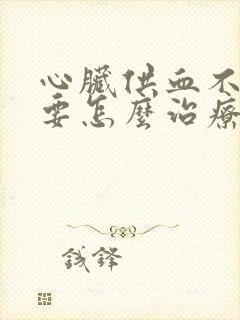 心臟供血不
要怎麼治療
鋒